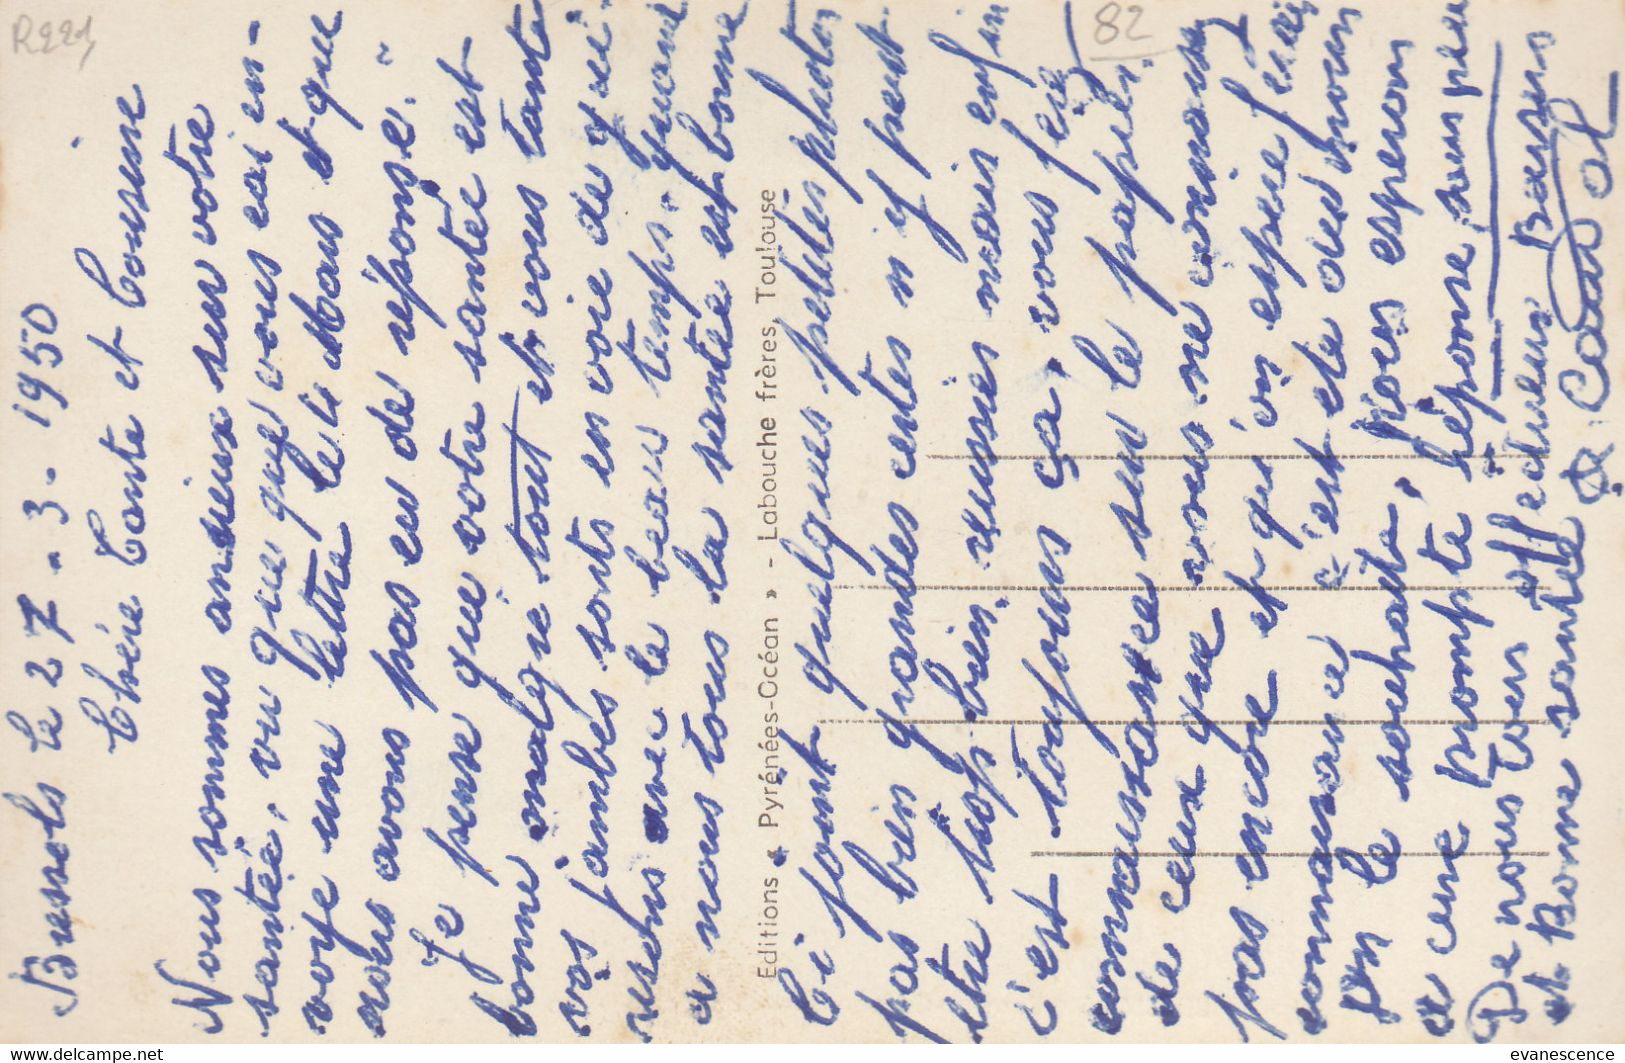 R221
82
Bressols le 27-3-1950
Chère Tante et Cousine
Nous sommes ansieux sur votre
santée, vu que que vous eai en-
voye une lettre le 12 Mars et que
nous avons pas eu de réponse.
Je pense que votre santée est
bonne malgré tout et vous tante
vos jambes sont en voie de gué-
risons avec le beau temps. quand
a nous tous la santée est bonne
Editions « Pyrénées-Océan » - Labouche frères, Toulouse
Ci joint quelques petites photos
pas bien grandes certes n'y peut-
etre trop bien reussies mais enfin
c'est toujours ça, vous fere
connaissance sur le papier
de ceux que vous ne connaisse
pas encore et qu'on espère faire
connaissance c'est du moins
on le souhaite, Nous esperons
a une prompte réponse,
De nous tous affectueux Baisers
et Bonne santée
evanescence